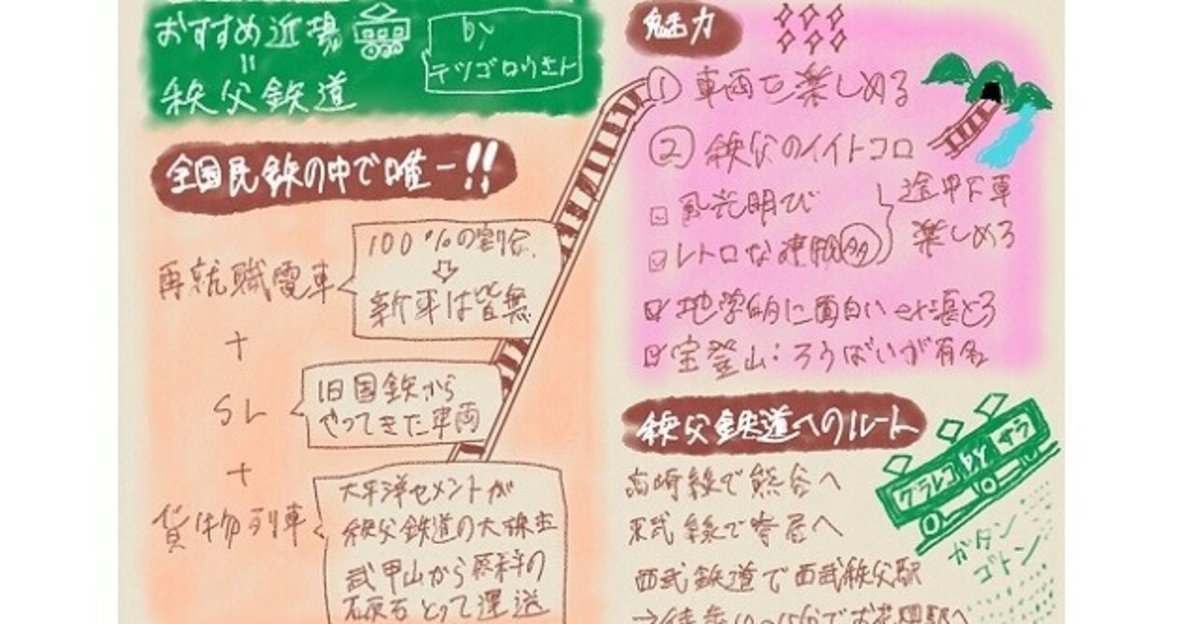 おすすめ近場
=
秩父鉄道
by
テツゴロウさん
全国民鉄の中で唯一!!
再就職電車
100%の割合
⇩
新車は皆無
+
SL
旧国鉄から
やってきた車両
+
貨物列車
太平洋セメントが
秩父鉄道の大株主
武甲山から原料の
石灰石とって運送
魅力
① 車両を楽しめる
② 秩父のイイトコロ
☑ 風光明び
☑ レトロな建物多
途中下車
楽しめる
☑ 地学的に面白い ex長とろ
☑ 宝登山:ろうばいが有名
秩父鉄道へのルート
高崎線で熊谷へ
東武線で寄居へ
西武鉄道で西武秩父駅
→徒歩10〜15分でお花畑駅へ
グラレコ by サラ
ガタン
ゴトン